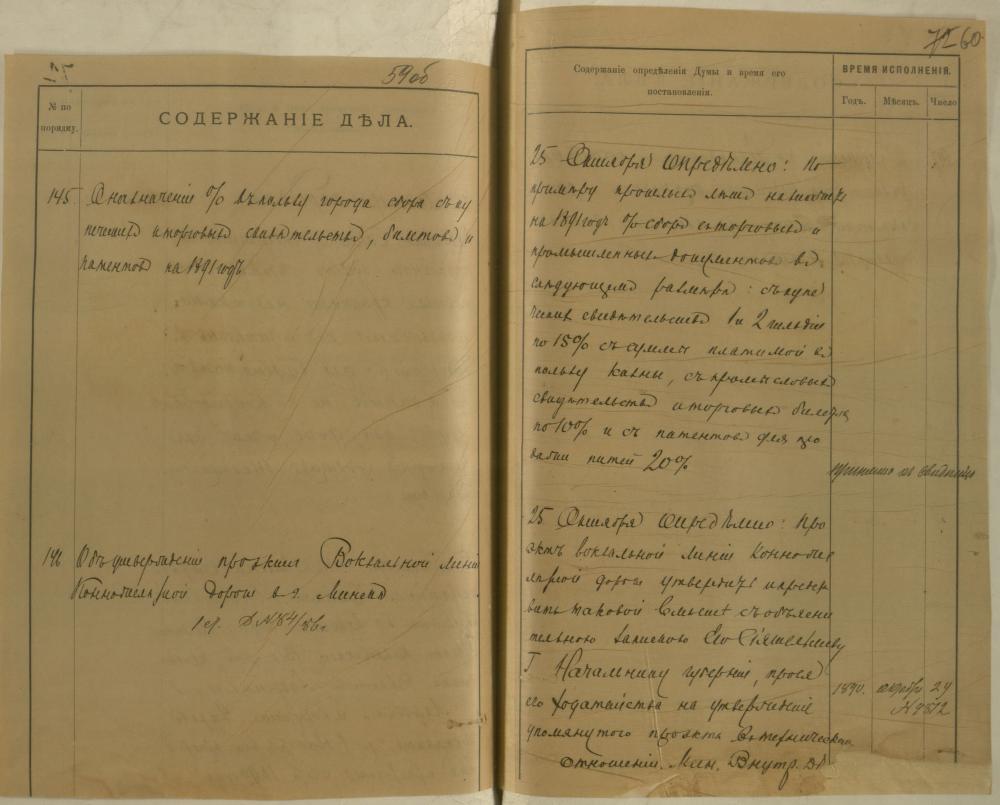 59об
№ по
порядку.
СОДЕРЖАНІЕ ДѢЛА.
145
О назначеніи % въ пользу города сбора съ ку
печескихъ и торговыхъ свидѣтельствъ, билетовъ и
патентовъ на 1891 годъ
146
Объ утвержденіи проэкта Вокзальной линіи
Конножелѣзной дороги въ г. Минскѣ
60
Содержаніе опредѣленія Думы и время его
постановленія.
ВРЕМЯ ИСПОЛНЕНІЯ.
Годъ.
Мѣсяцъ.
Число
25 Октября Опредѣлено: По
примѣру прошлыхъ лѣтъ назначить
на 1891 годъ % сборъ съ торговыхъ и
промышленныхъ документовъ въ
слѣдующемъ размѣрѣ: съ купе
ческихъ свидѣтельствъ 1 и 2 гильдіи
по 15% съ суммы платимой въ
пользу казны, съ промысловыхъ
свидѣтельствъ и торговыхъ билетовъ
по 10% и съ патентовъ для про
дажи питей 20%
принято къ свѣдѣнію
25 Октября Опредѣлено: Про
эктъ вокзальной линіи Конножел
ѣзной дороги утвердить и предста
вить таковой вмѣстѣ съ объясни
тельною запискою Его Сіятельству
Г Начальнику губерніи, прося
его ходатайства на утвержденіе
упомянутого проэкта въ техническомъ
отношеніи Мин. Внутр. Дѣ
1890. октября 29
N 4812